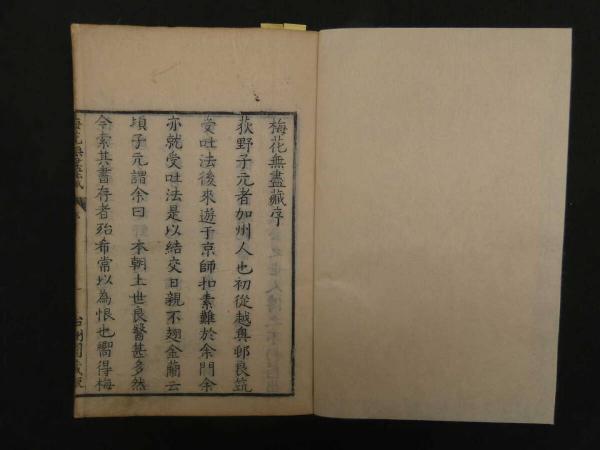 梅花無盡藏序
荻野子元者加州人也初從越奥邨良筑
受吐法後來遊于京師扣素難於余門余
亦就受吐法是以結交日親不翅金蘭云
頃子元謂余曰 本朝上世良醫甚多然
今索其書存者殆希常以為恨也嚮得梅